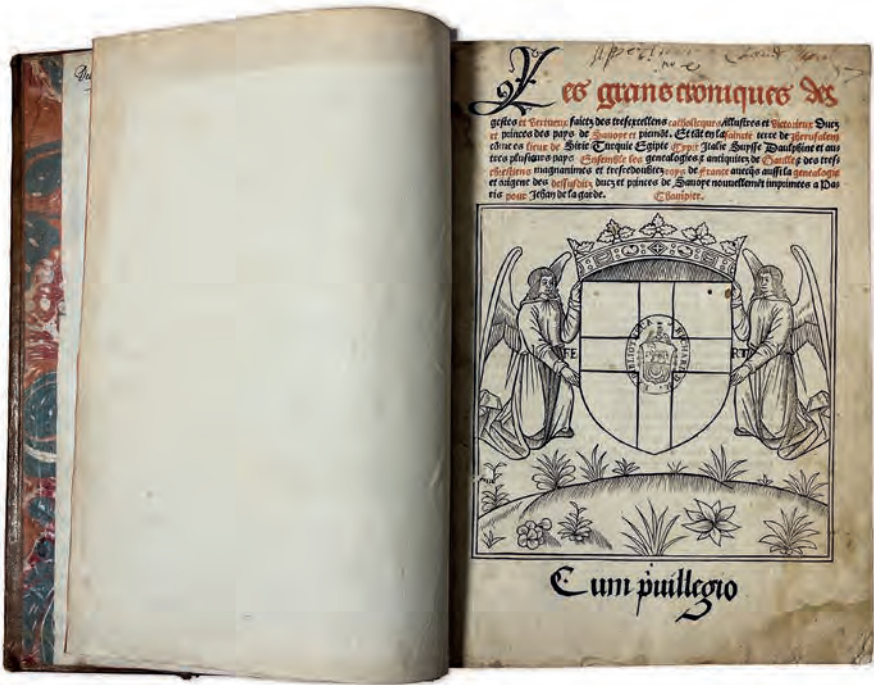 Les grans croniques des
gestes et vertueux faictz des tresexcellens catholicques illustres et victorieux Ducz
et princes des pays de Savoye et piemõt. Et tãt en la saincte terre de Jherusalem
cõme es lieux de Sirie Turquie Egipte Cypre Italie Suysse Daulphine et aul
tres plusieurs pays Ensemble les genealogies & antiquitez de Gaulle & des tres
chrestiens magnanimes et tresredoubtez roys de France avecq̃s aussi la genealogie
et origine des dessusditz ducz et princes de Savoye nouvellemẽt imprimees a Pa
ris pour Jehan de la garde. Champier.
FE RT
BIBLIOTHECA
Cum puillegio